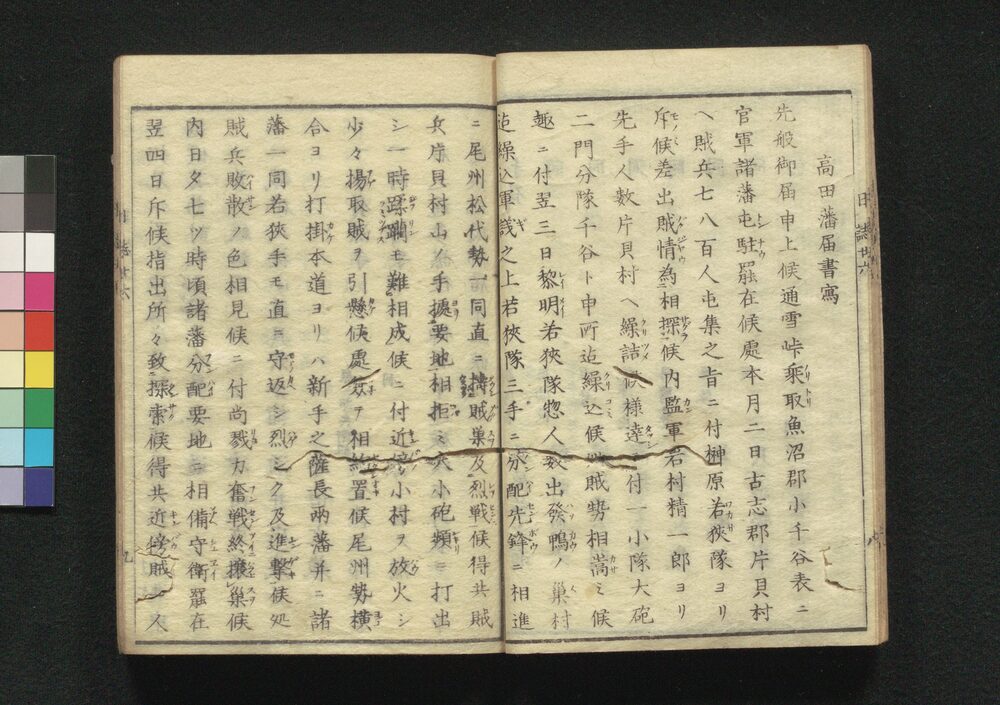 高田藩届書寫
先般御届申上候通雪峠乗取魚沼郡小千谷表ニ
官軍諸藩屯駐罷在候處本月二日古志郡片貝村
ヘ賊兵七八百人屯集之旨ニ付榊原若狹隊ヨリ
斥候差出賊情為相探候内監軍岩村精一郎ヨリ
先手人数片貝村ヘ繰詰候様達ニ付一小隊大砲
二門分隊千谷ト申所迄繰込候賊勢相嵩ミ候
趣ニ付翌三日黎明若狹隊惣人数出發鴨ノ巣村
迄繰込軍議之上若狹隊三手ニ分配先鋒ニ相進
ニ尾州松代勢一同直ニ賊巣及烈戦候得共賊
兵片貝村山ノ手據要地相拒ミ大小砲頻ニ打出
シ一時蹂躙モ難相成候ニ付近傍小村ヲ放火シ
少々揚取賊ヲ引懸候處敢ヲ相置候尾州勢横
合ヨリ打掛本道ヨリハ新手之薩長両藩并ニ諸
藩一同若狹手モ直ニ守返シ烈シク及進撃候処
賊兵敗散ノ色相見候ニ付尚戮力奮戦終攘巣候
内日夕七ツ時頃諸藩分配要地ニ相備守衛罷在
翌四日斥候指出所々致探索候得共近傍賊
日誌廿六
九